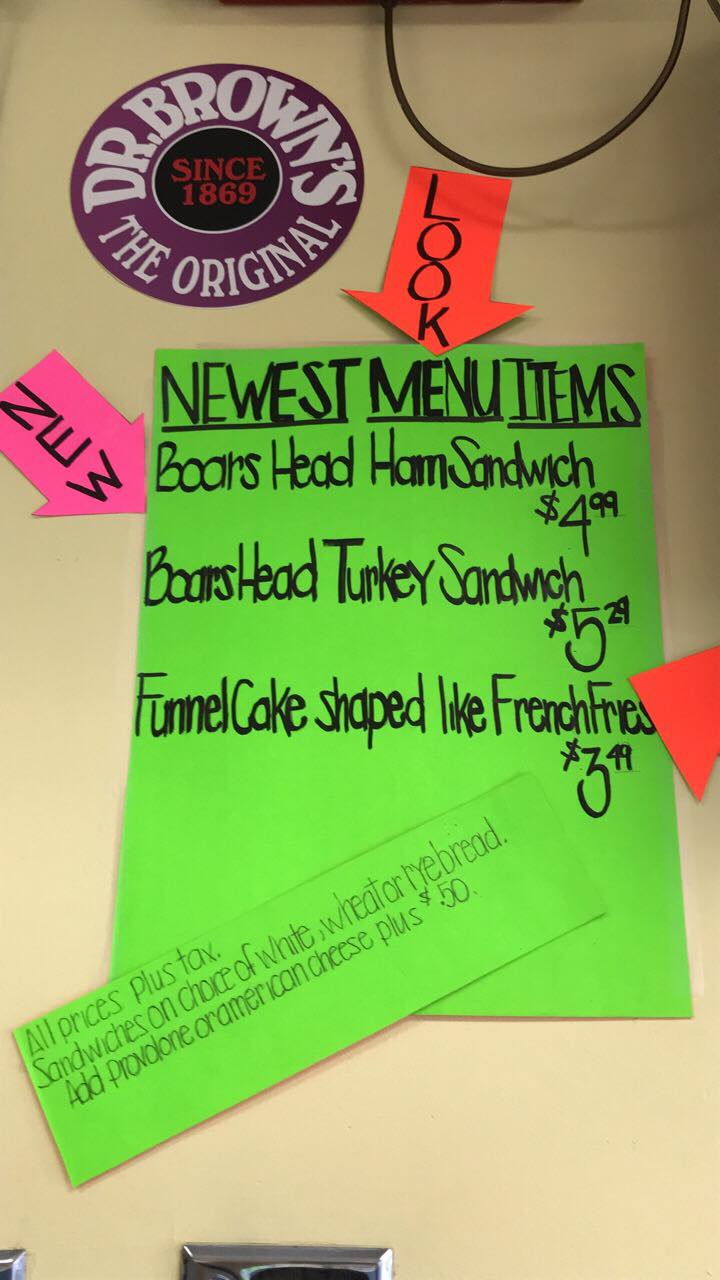 DR. BROWN'S
SINCE
1869
THE ORIGINAL
LOOK
NEW
NEWEST MENU ITEMS
Boars Head Ham Sandwich
$4.99
Boars Head Turkey Sandwich
$5.29
Funnel Cake shaped like French Fries
$3.49
All prices plus tax.
Sandwiches on choice of white, wheat or rye bread.
Add provolone or american cheese plus $.50.